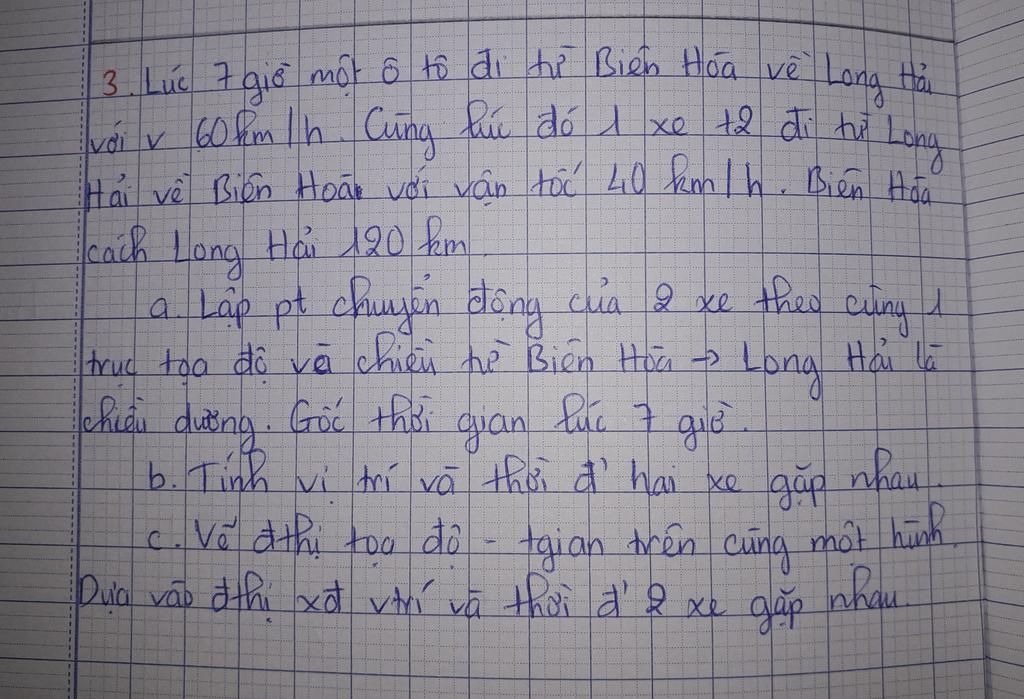 3. Lúc 7 giờ một ô tô đi từ Biên Hòa về Long Hải
với v 60km/h. Cùng lúc đó 1 xe t2 đi từ Long
Hải về Biên Hoà với vận tốc 40 km/h. Biên Hòa
cách Long Hải 120 km
a. Lập pt chuyển động của 2 xe theo cùng 1
trục tọa độ và chiều từ Biên Hòa → Long Hải là
chiều dương. Gốc thời gian lúc 7 giờ.
b. Tính vị trí và thời đ' hai xe gặp nhau.
c. Vẽ đthị tọa độ - tgian trên cùng một hình.
Dựa vào đthị xđ vtrí và thời đ' 2 xe gặp nhau.